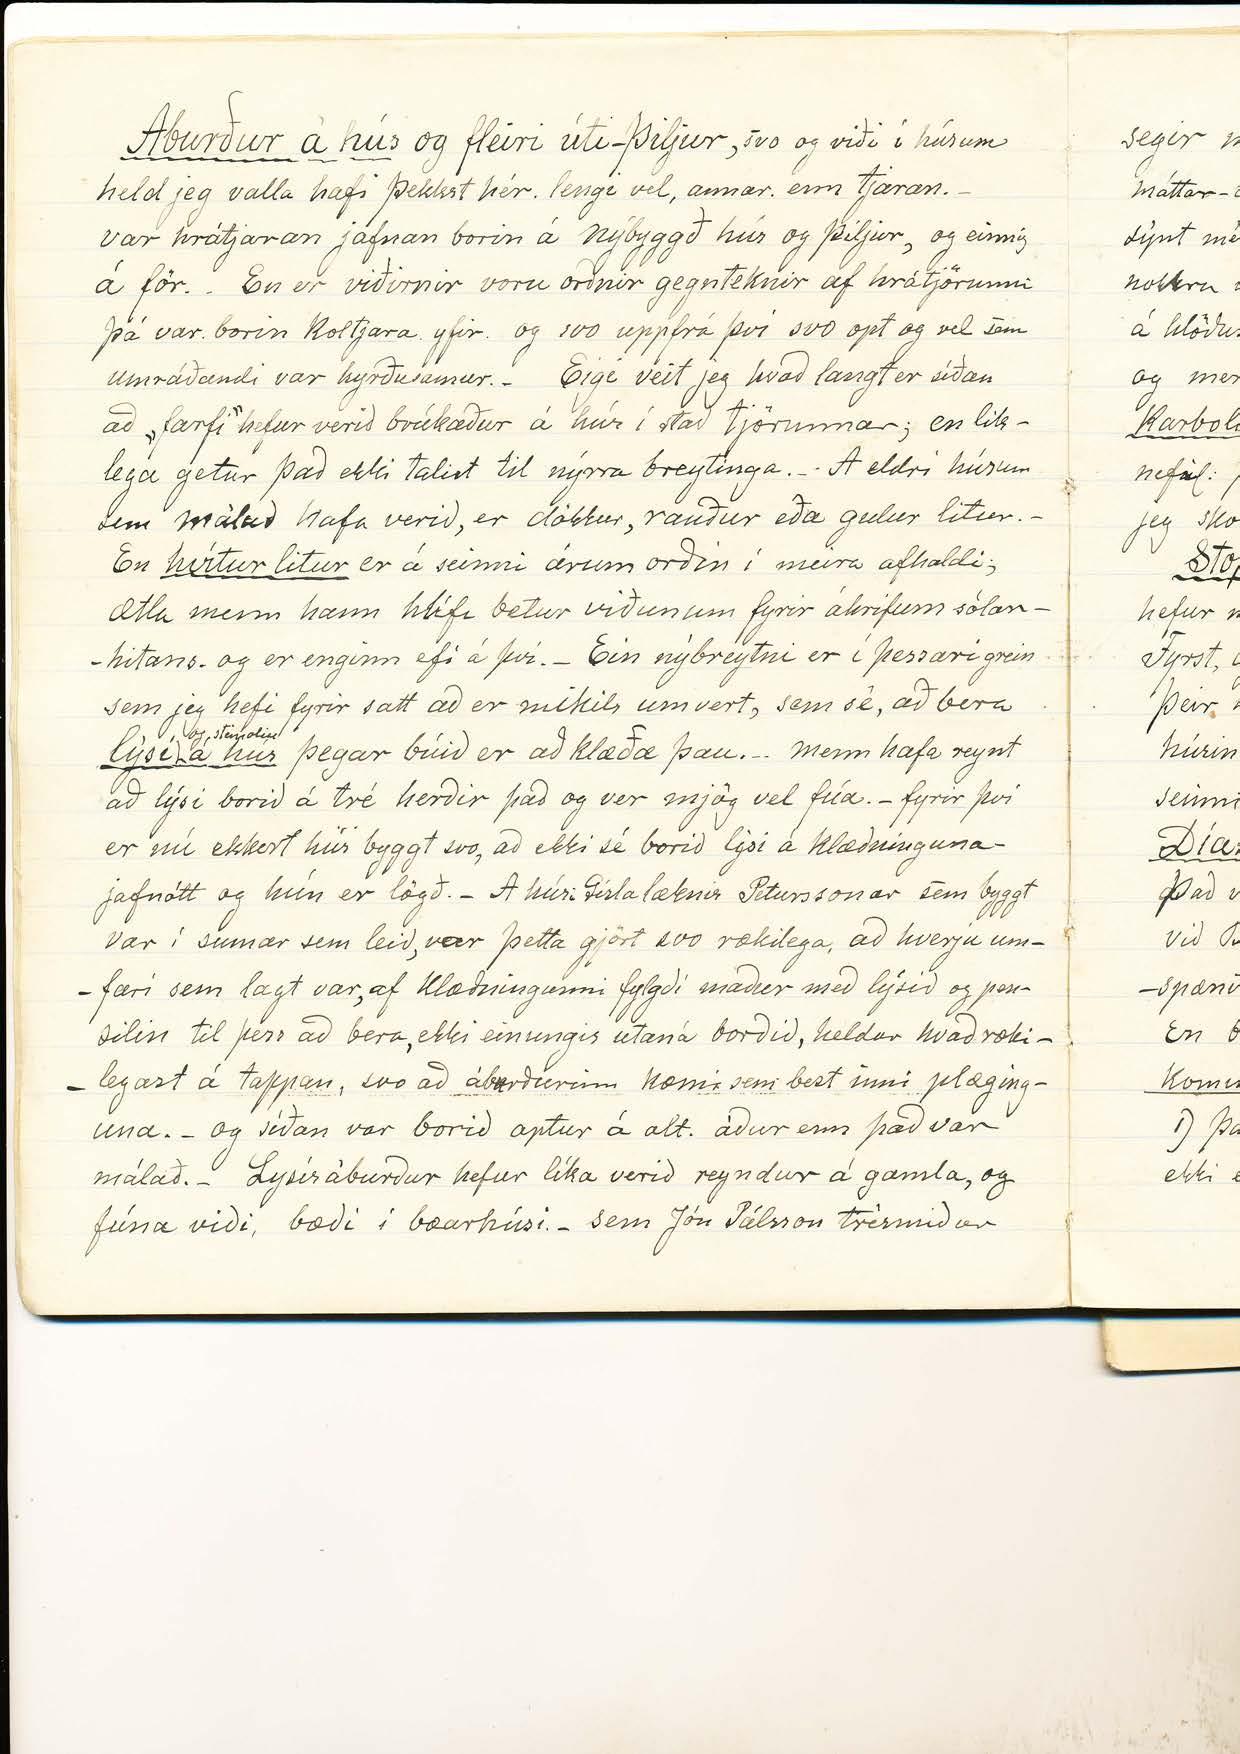 Aburður á hús og fleiri úti-Þiljur, svo og viði í húsum
held jeg valla hafi þekkst hér. lengi vel, annar. enn tjaran. –
var hrátjaran jafnan borin á nýbyggð hús og Þiljur, og einnig
á för. . En er viðirnir voru orðnir gegnteknir af hrátjörunni
þá var. borin koltjara. yfir. og svo uppfrá því svo opt og vel sem
umráðandi var hyrðusamur. – Eigi veit jeg hvað langt er síðan
að „farfi“ hefur verið brúkaður á hús í stað tjörunnar; en lik-
lega getur það ekki talist til nýrra breytinga. – A eldri húsum
sem málað hafa verið, er dökkur, rauður eða gulur litur. –
En hvítur litur er á seinni árum orðin í meira afhaldi;
ætla menn hann hlífi betur viðunum fyrir áhrifum sólar-
-hitans. og er enginn efi á því. – Ein nýbreytni er í þessari grein
sem jeg hefi fyrir satt að er mikils umvert, sem sé, að bera
og steinolíu
lýsi á hús þegar búið er að klæða þau. – menn hafa reynt
að lýsi borið á tré herðir það og ver mjög vel fúa. – fyrir því
er nú ekkert hús byggt svo, að ekki sé borið lýsi á klædninguna
jafnótt og hún er lögð. – A húsi Gísla læknis Péturssonar sem byggt
var í sumar sem leið, var þetta gjört svo rækilega, að hverju um-
-fari sem lagt var, af klædningunni fylgdi maður með lýsið og pen-
silin til þess að bera, ekki einungis utaná borðið, heldur hvað ræki-
-legast á tappan, svo að áburðurinn kæmi sem best inni plæging-
una. – og síðan var borið aptur á alt. áður enn það var
málað. – Lýsisáburður hefur líka verið reyndur á gamla, og
fúna viði, bæði í bæarhúsi. – sem Jón Pálsson trésmiður
segir
máttar-
sýnt
nokkru
á hlöðu
og
Karbol
nefnil:
jeg
Sto
hefur
Fyrst,
Þeir
húsin
seinni
Það
við
-spæni
En
1)
ekki